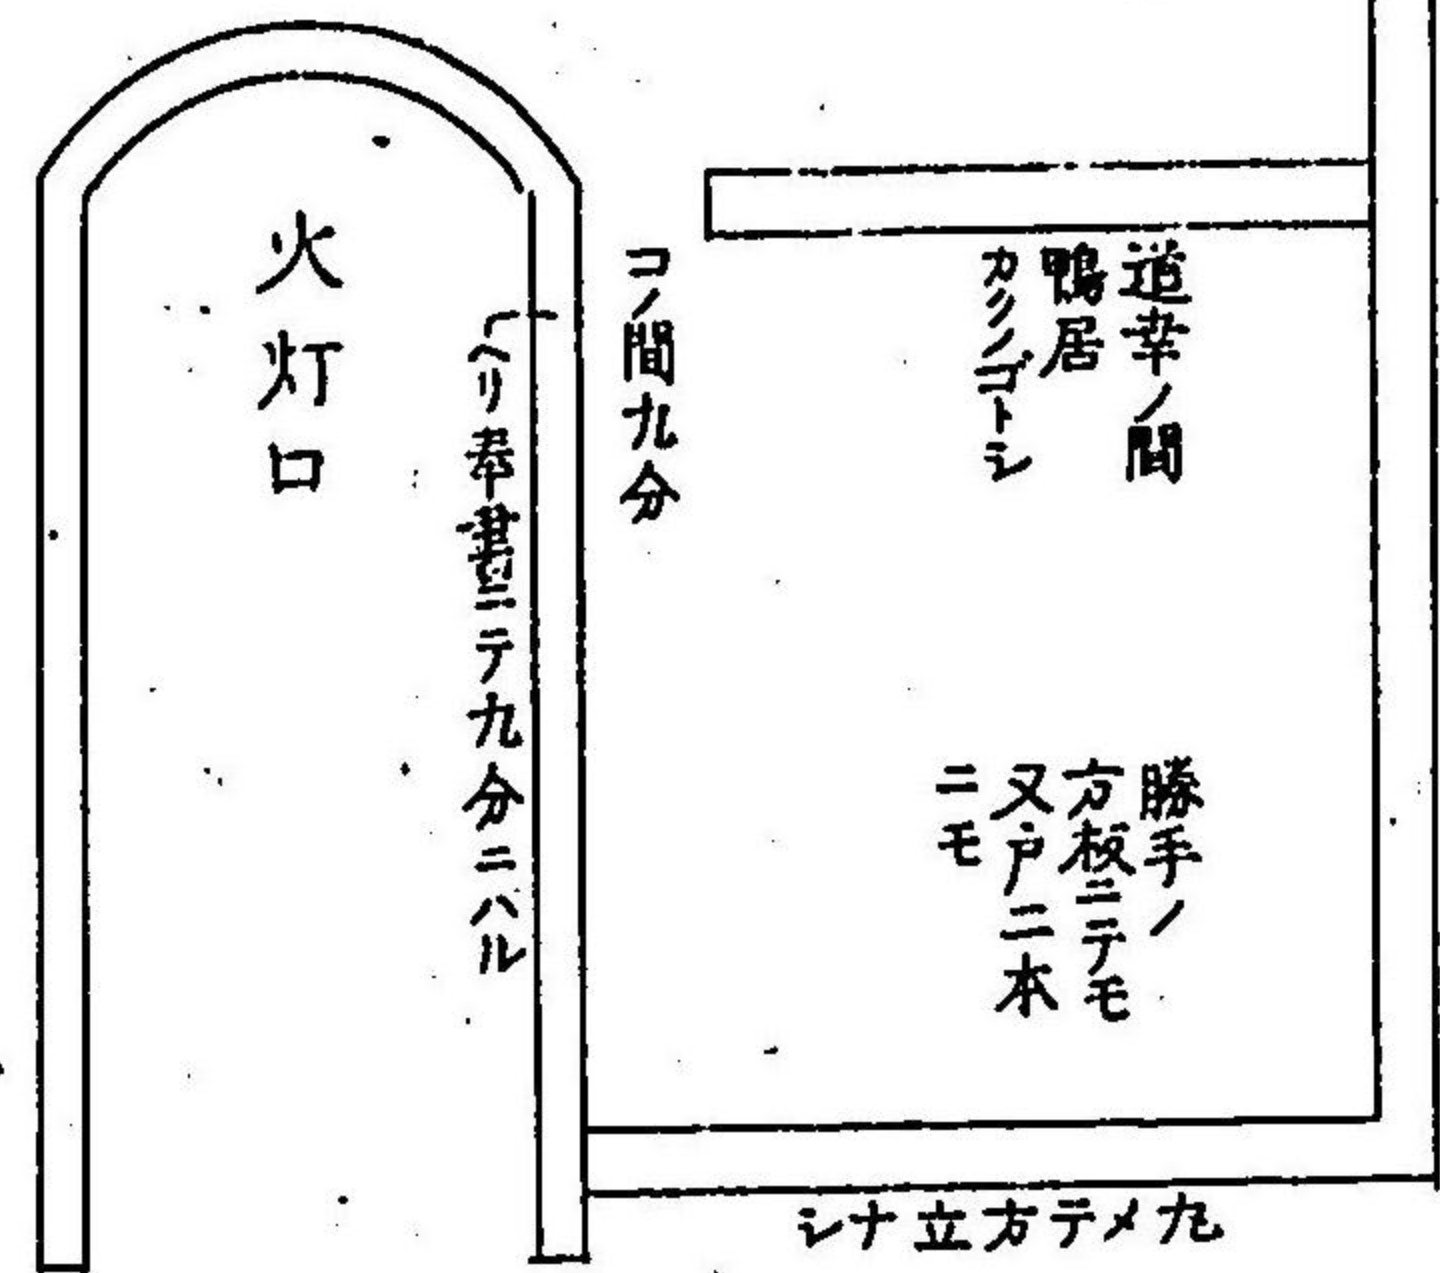 道幸ノ間
鴨居
カクノゴトシ
勝手ノ
方板ニテモ
又戸二本
ニモ
コノ間九分
ヘリ奉書ニテ九分ニハル
火灯口
九メテ方立ナシ